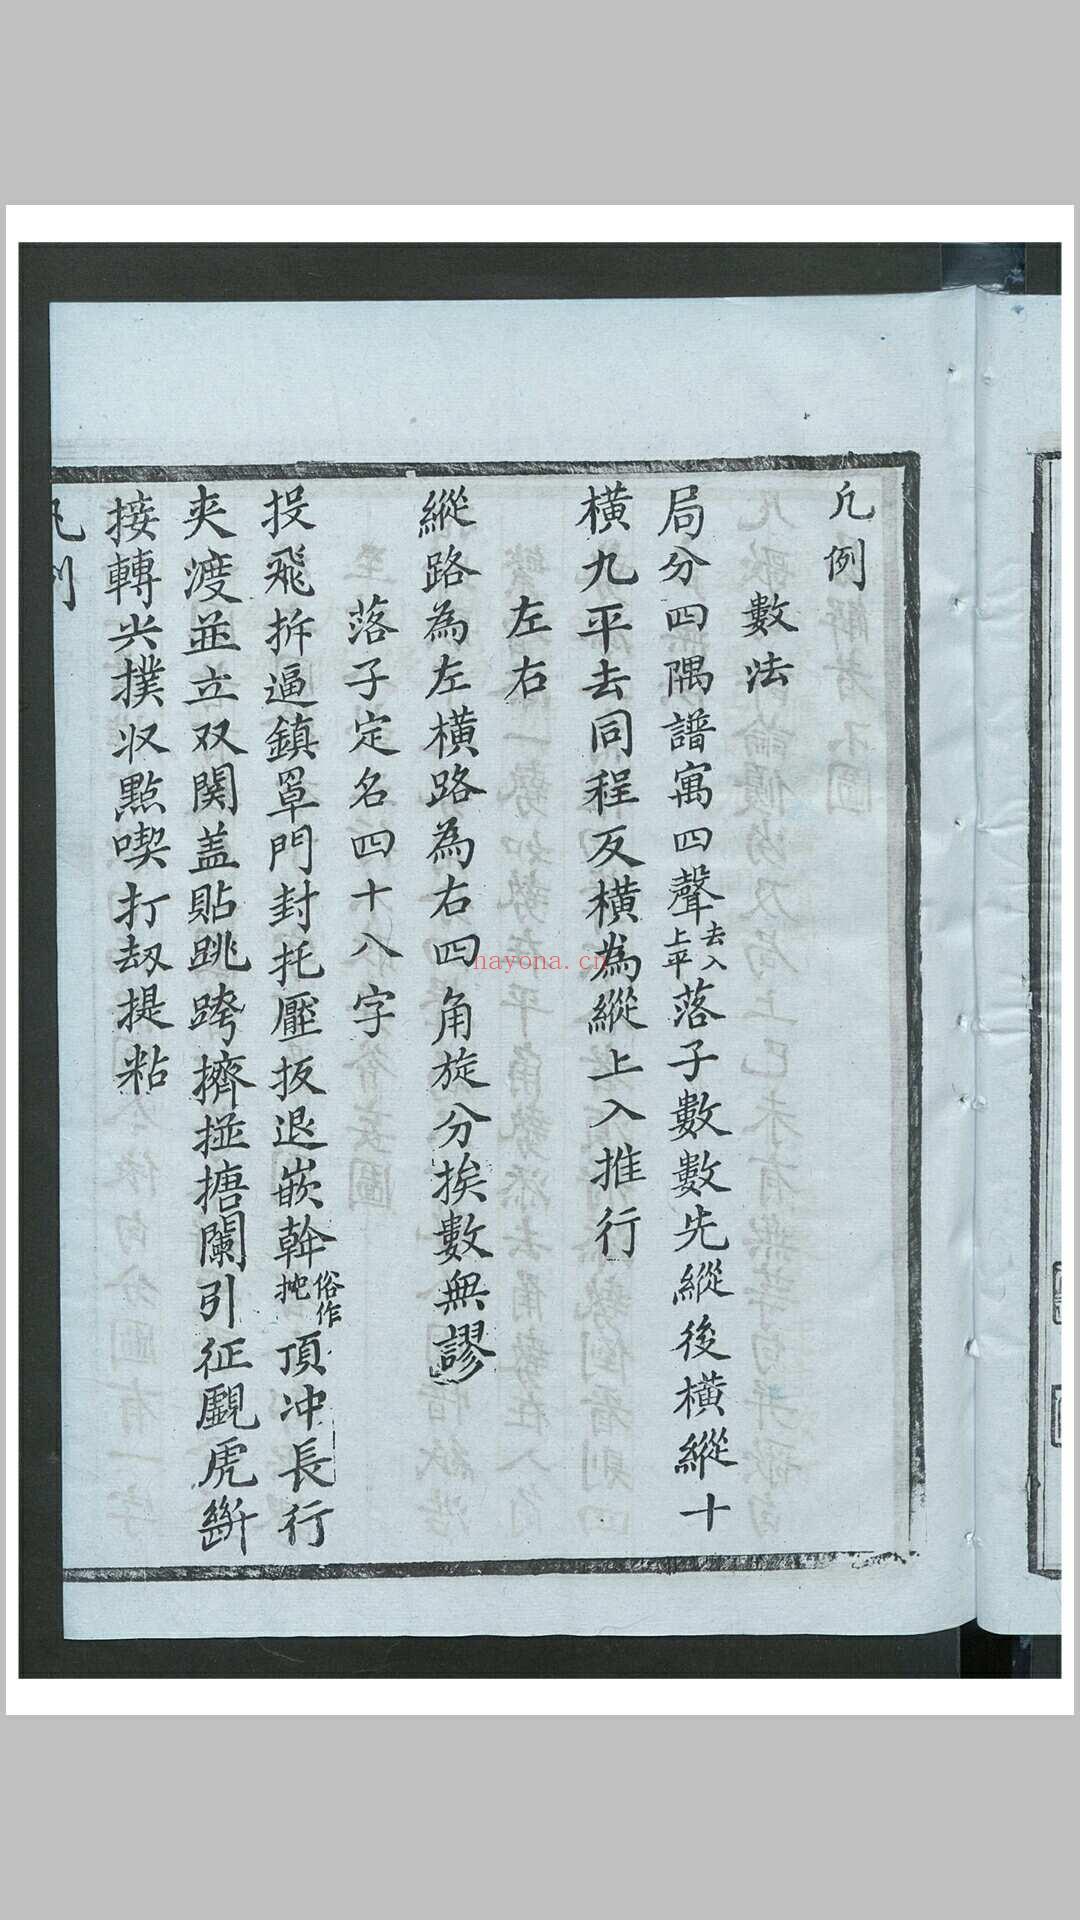 凡例
數法
局分四隅譜寓四聲去入上平落子數數先縱後橫縱十
橫九平去同程反橫為縱上入推行
左右
縱路為左橫路為右四角旋分挨數無謬
落子定名四十八字
投飛拆逼鎮罩門封托壓扳退嵌斡俗作挖頂冲長行
夾渡並立双関盖貼跳跨擠掽搪闌引征覷虎斷
接轉尖撲収點喫打劫提粘
凡例
hayona.cn